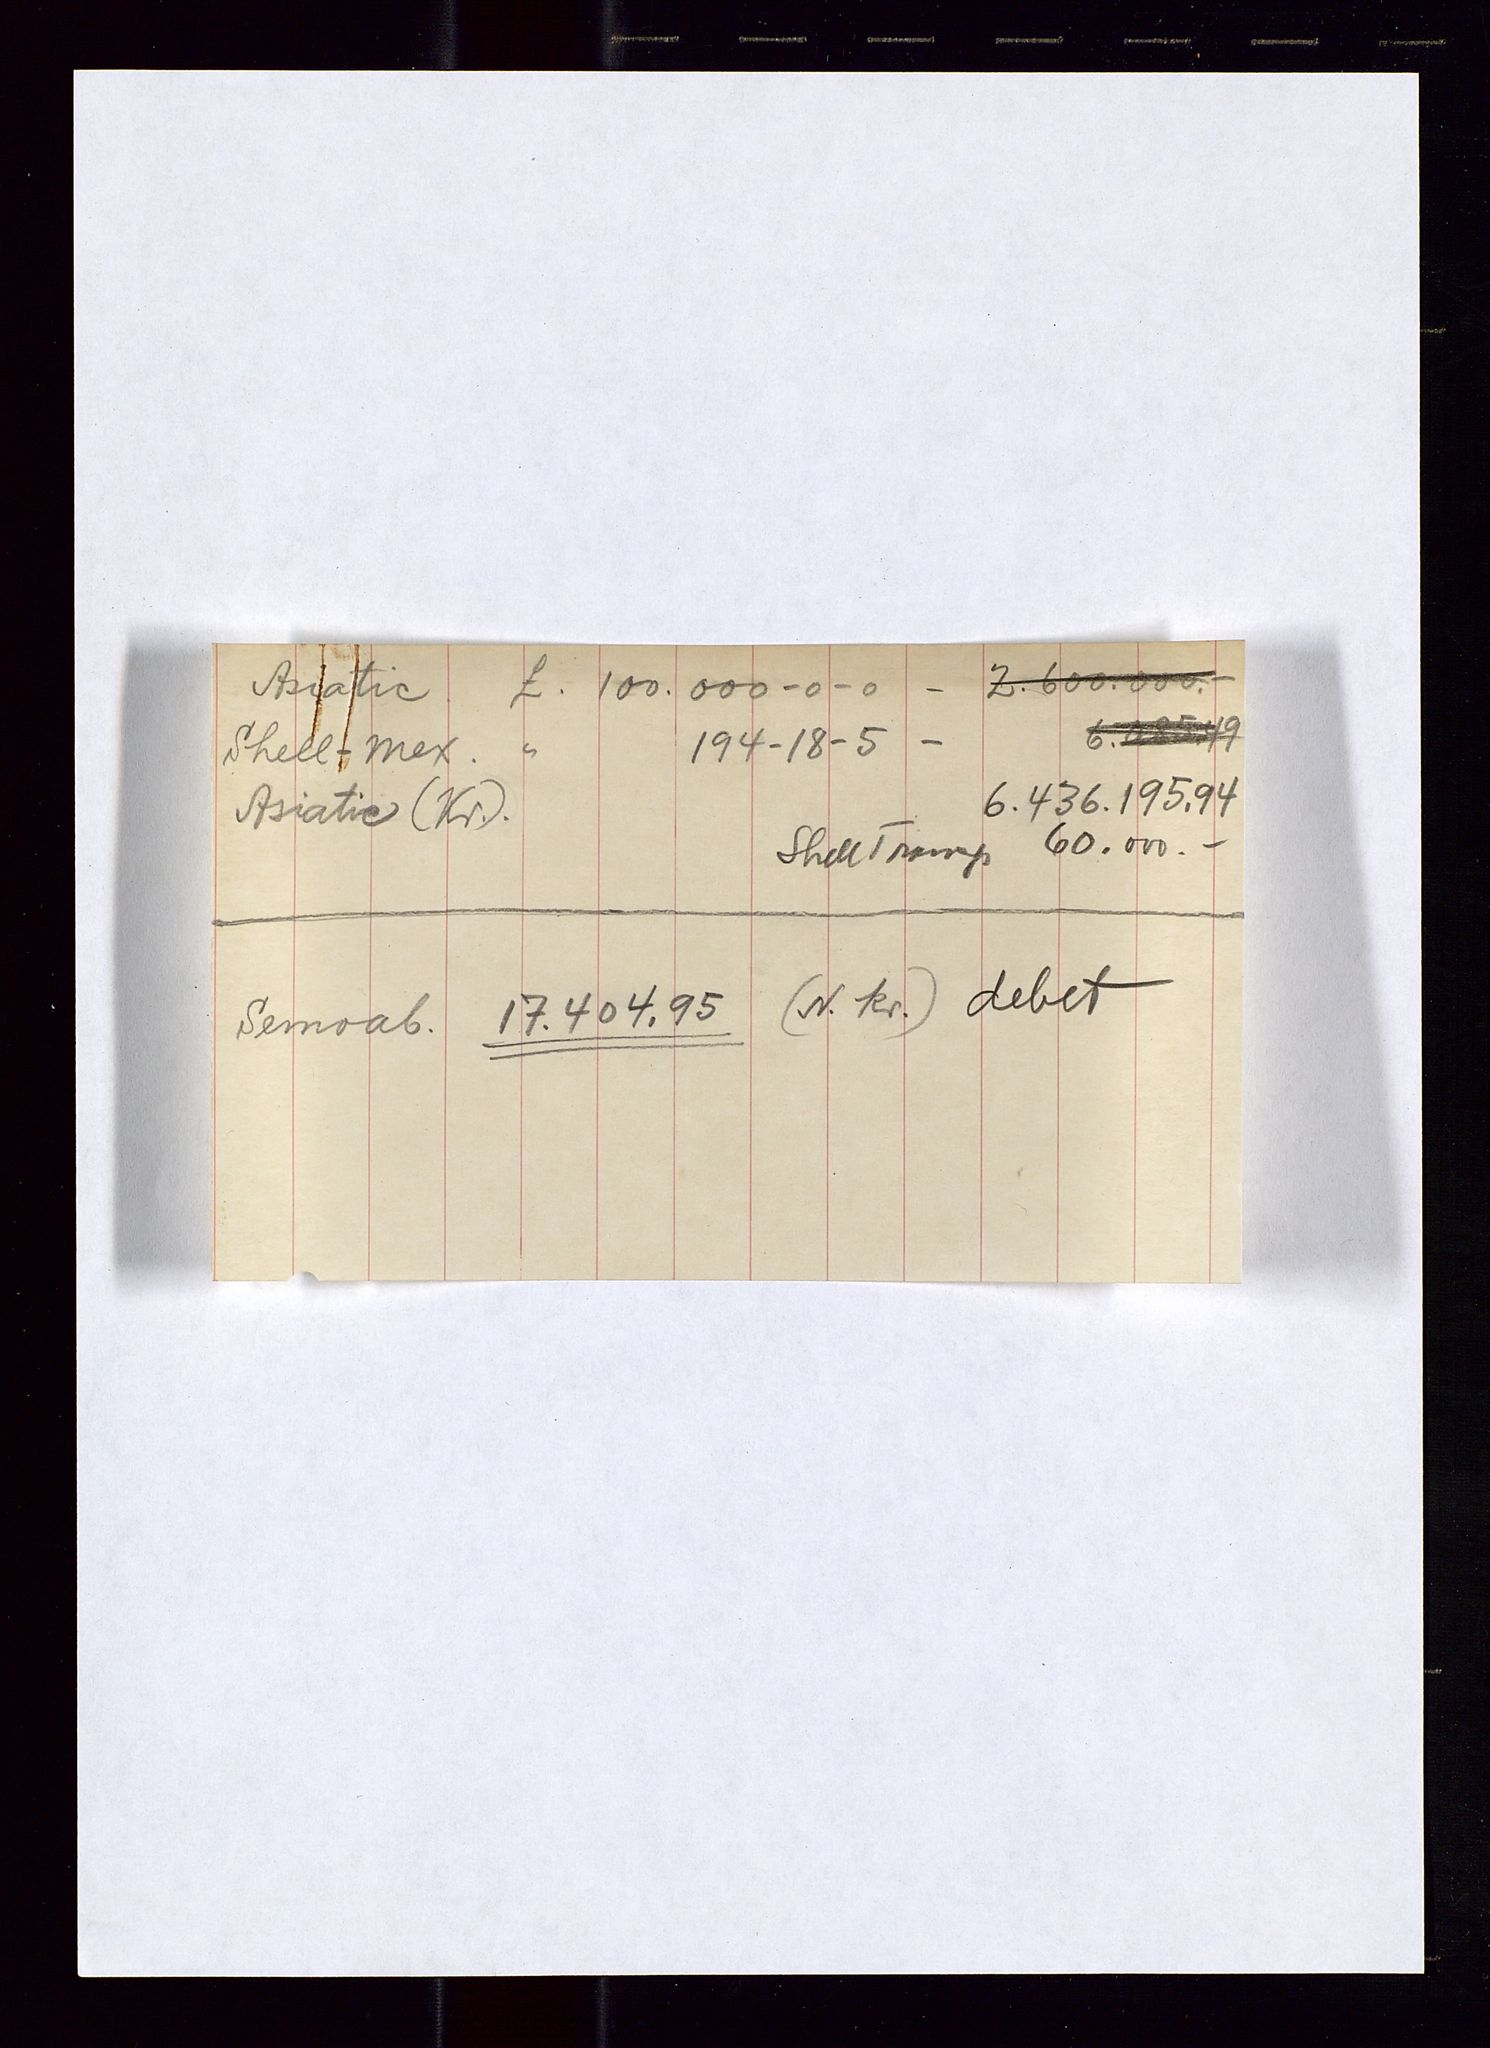 Asiatic £. 100.000-0-0 - 2.600.000.-
Shell-Mex. " 194-18-5 - 6. 49
Asiatic (Kr.). 6.436.195,94
Shell Tramp 60.000.-
Semoab. 17.404,95 (N. kr.) debet